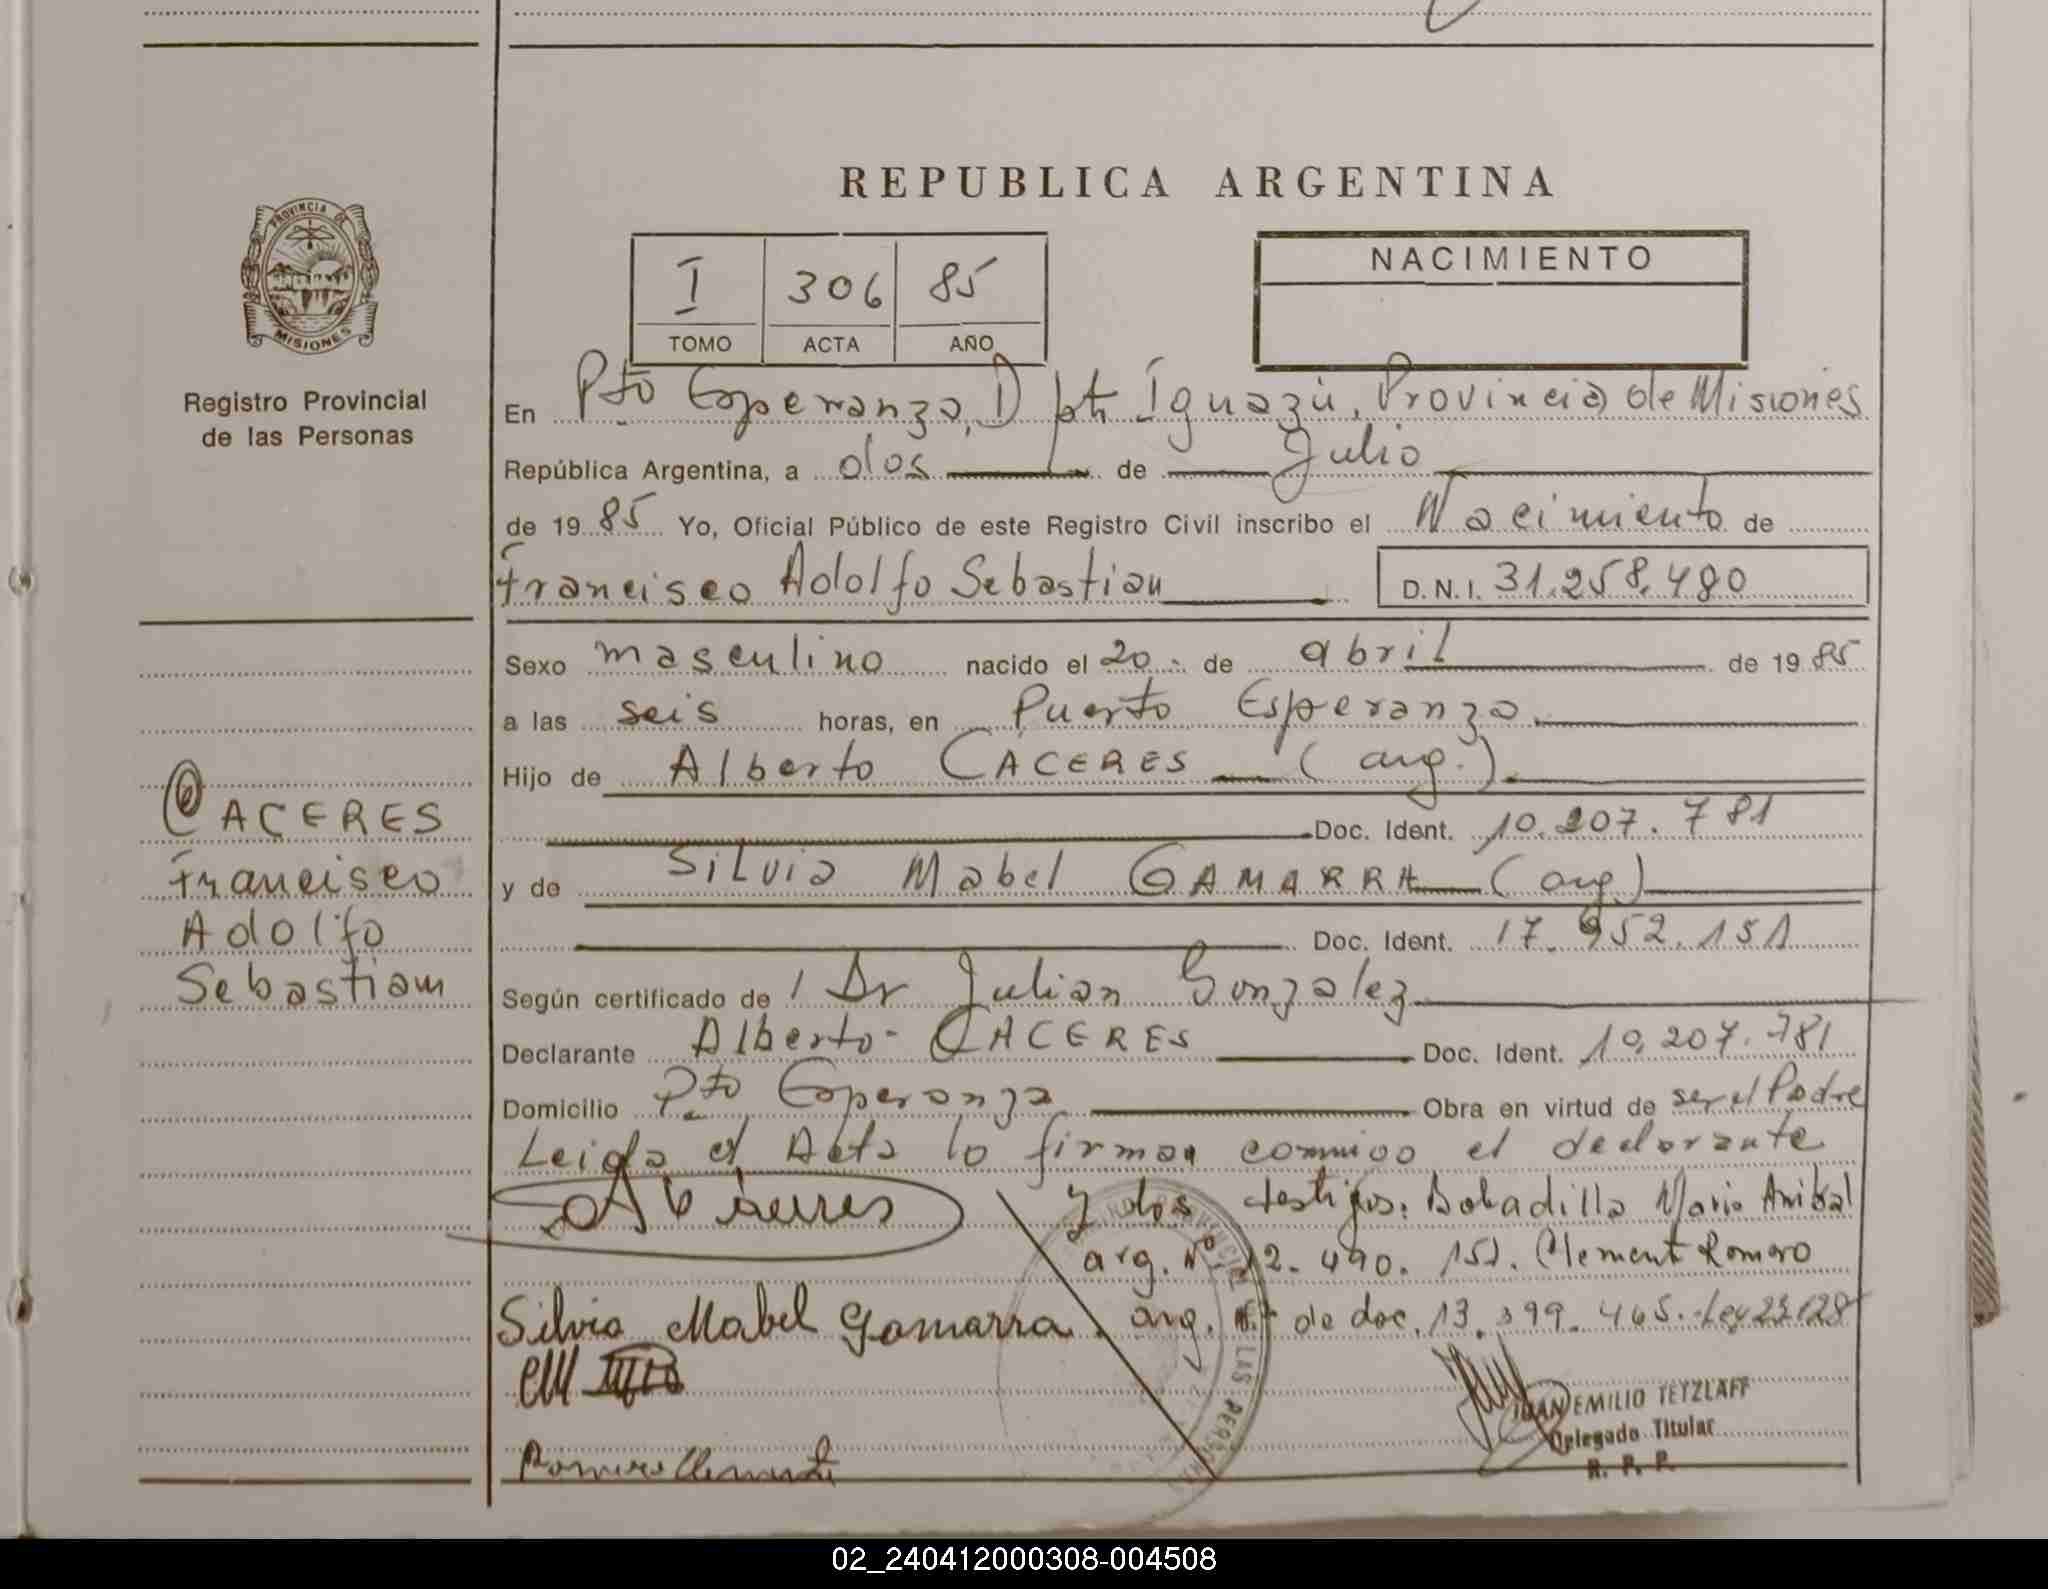 REPUBLICA ARGENTINA
PROVINCIA DE
MISIONES
Registro Provincial
de las Personas
I 306 85
TOMO ACTA AÑO
NACIMIENTO
En Pto Esperanza, Dpto Iguazú, Provincia de Misiones
República Argentina, a dos de Julio
de 1985 Yo, Oficial Público de este Registro Civil inscribo el Nacimiento de
Francisco Adolfo Sebastian D.N.I. 31.258.480
Sexo masculino nacido el 20 de abril de 1985
a las seis horas, en Puerto Esperanza
Hijo de Alberto CACERES (arg.)
Doc. Ident. 10.207.781
y de Silvia Mabel GAMARRA (arg)
Doc. Ident. 17.952.151
Según certificado de l Dr Julian Gonzalez
Declarante Alberto CACERES Doc. Ident. 10.207.781
Domicilio Pto Esperanza Obra en virtud de ser el Padre
Leida el Acta lo firman conmigo el declarante
y dos testigos. Bobadilla Mario Anibal
arg. Nº 12.490.151. Clement Romero
Silvia Mabel Gamarra
arg. de doc. 13.399.465. Ley 23.128
JUAN EMILIO TETZLAFF
Delegado Titular
R. P. P.
Romero Clemente
CACERES
Francisco
Adolfo
Sebastiam
LAS PERSONAS
02_240412000308-004508